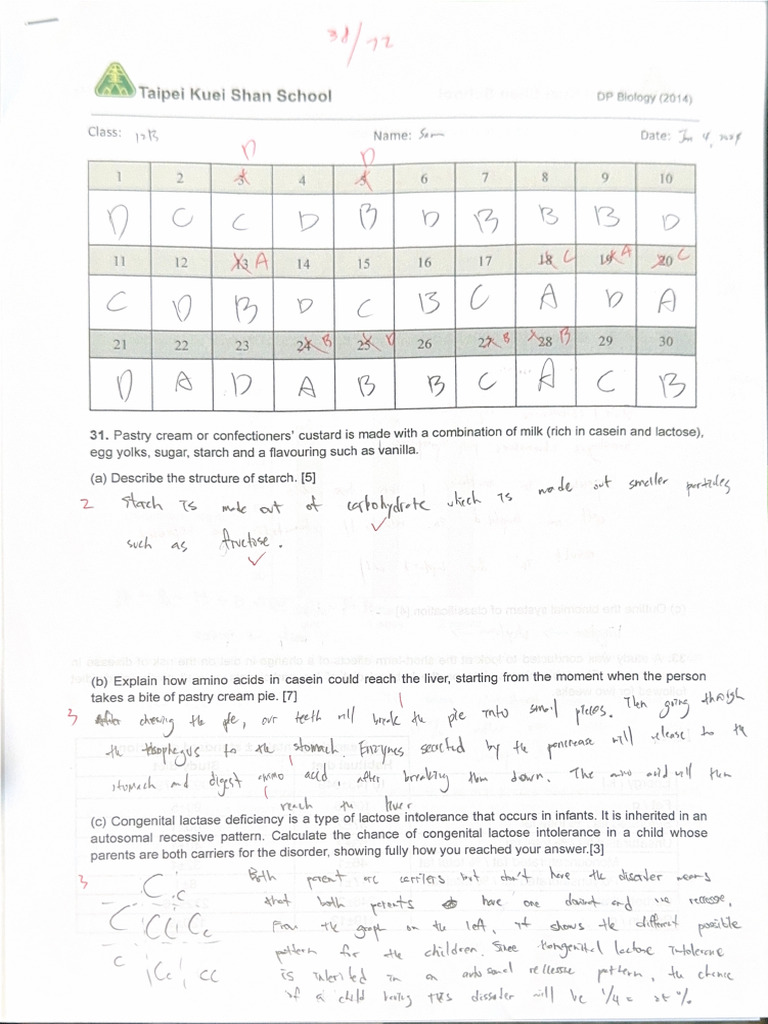 38/72
Taipei Kuei Shan School
DP Biology (2014)
Class: 12B Name: Sam Date: Jan 4,
D D
1 2 3 4 5 6 7 8 9 10
D C C D B D B B B D
11 12 13 A 14 15 16 17 18 C 19 A 20 C
C D B D C B C A D A
21 22 23 24 B 25 D 26 27 B 28 B 29 30
D A D A B B C A C B
31. Pastry cream or confectioners' custard is made with a combination of milk (rich in casein and lactose),
egg yolks, sugar, starch and a flavouring such as vanilla.
(a) Describe the structure of starch. [5]
2 Starch is made out of carbohydrate which is made out smaller particles
such as fructose.
(b) Explain how amino acids in casein could reach the liver, starting from the moment when the person
takes a bite of pastry cream pie. [7]
3 After chewing the pie, our teeth will break the pie into small pieces. Then going through
the to the stomach. Enzymes secreted by the pancrease will release to the
stomach and digest amino acid, after breaking them down. The amino acid will then
reach the liver
(c) Congenital lactase deficiency is a type of lactose intolerance that occurs in infants. It is inherited in an
autosomal recessive pattern. Calculate the chance of congenital lactose intolerance in a child whose
parents are both carriers for the disorder, showing fully how you reached your answer.[3]
3 C c
C CC Cc
c Cc cc
Both parent are carriers but don't have the disorder means
that both parents have one and one
From the graph on the left, it shows the different possible
pattern for the children. Since congenital lactose intolerance
is inherited in an autosomal pattern, the chance
of a child having this will be 1/4 = 25%